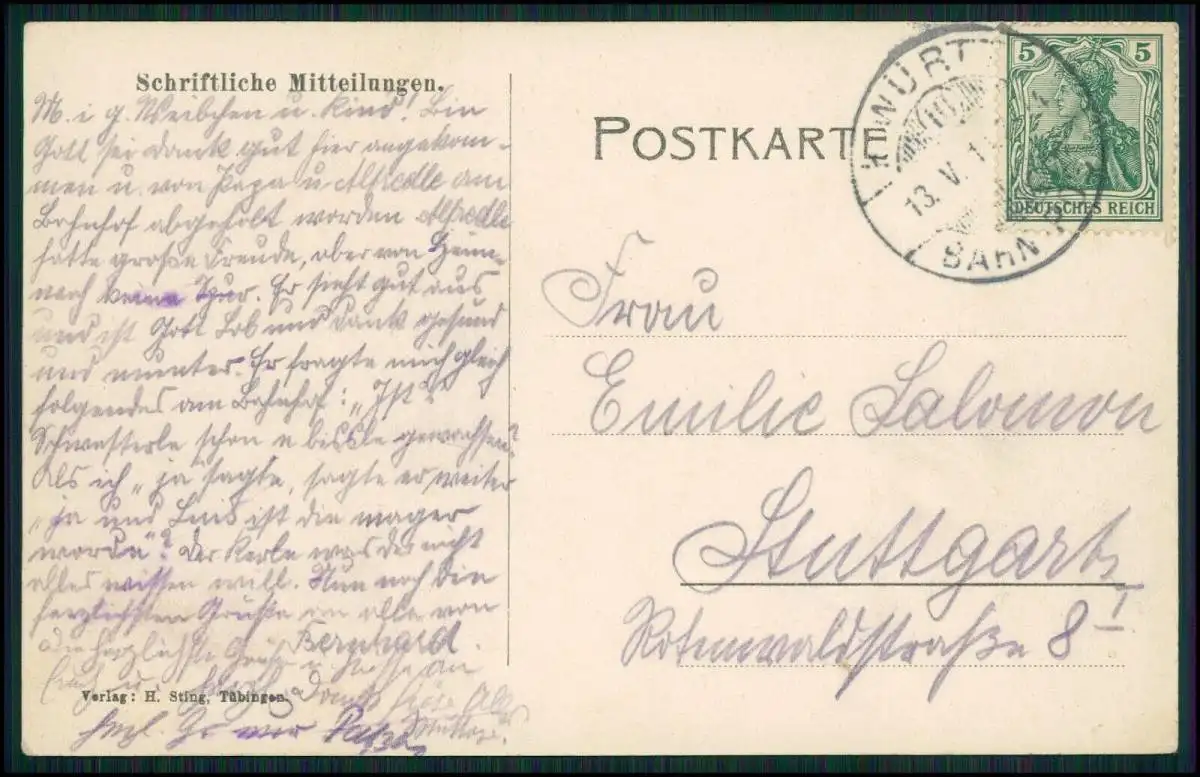 Schriftliche Mitteilungen.
M. i g. Weibchen u. Kind! Bin
Gott sei dank gut hier angekom-
men u. von Papa u Alfredle am
Bahnhof abgeholt worden Alfredle
hatte große Freude, aber von Heim-
weh keine Spur. Er sieht gut aus
und ist Gott Lob und Dank gesund
und munter. Er fragte mich gleich
folgendes am Bahnhof: „Ist
Schwesterle schon e bissle gewachsen?
Als ich „ja" sagte, sagte er weiter
„ja und Luis ist die mager
worde"? Der Kerle was der nicht
alles wissen will. Nun noch die
herzlichsten Grüße an alle von
Bernhard.
die herzlichste Grüße u Küsse an
Dank
herzl. Gr Papa
Verlag: H. Sting, Tübingen.
POSTKARTE
13. V. 1
BAHN
5 5
DEUTSCHES REICH
Frau
Emilie Salomon
Stuttgart
Rotenwaldstraße 8 I